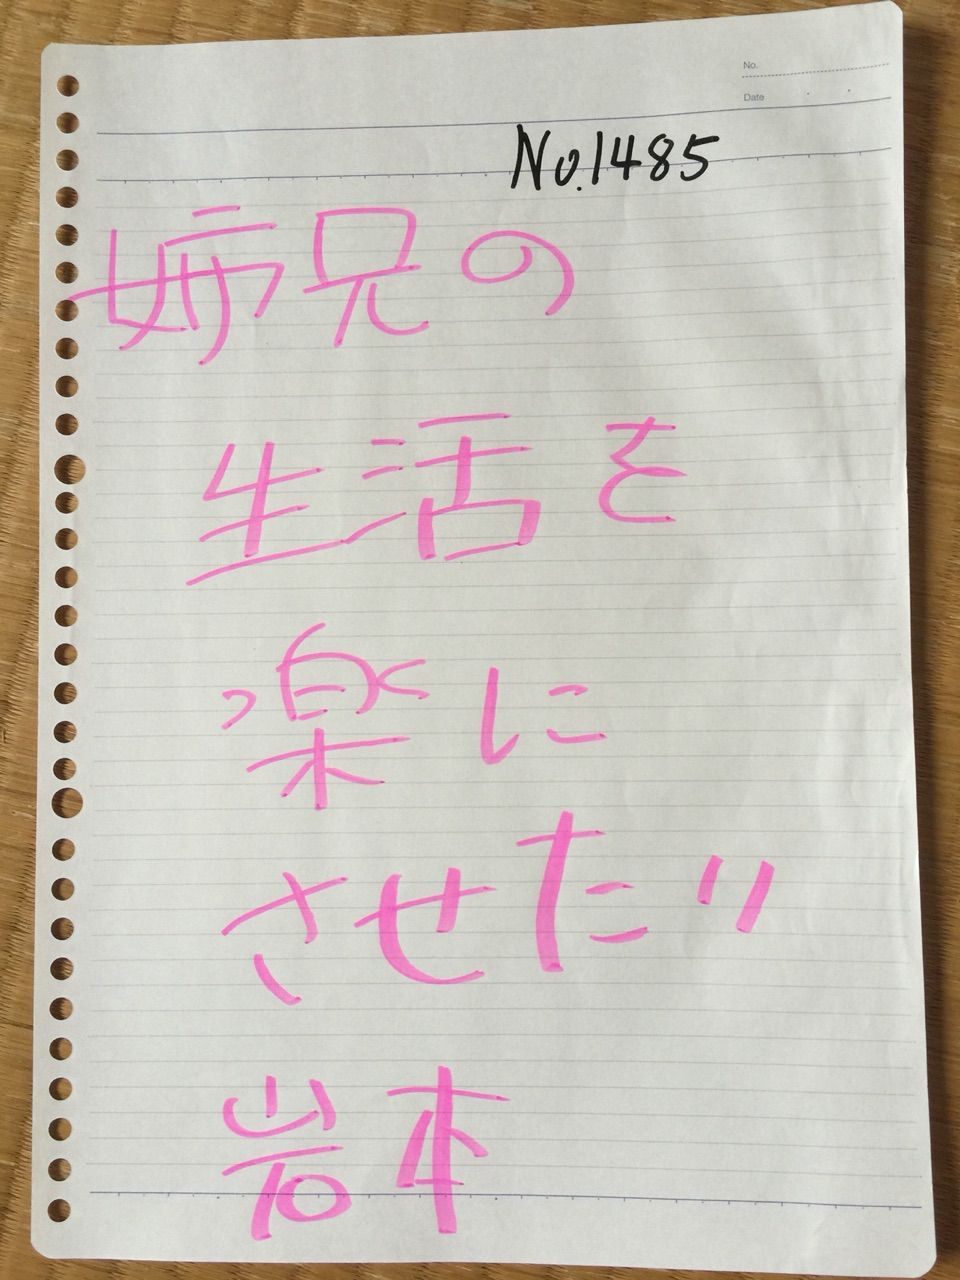 No.
Date
No.1485
姉兄の
生活を
楽に
させたい
岩本